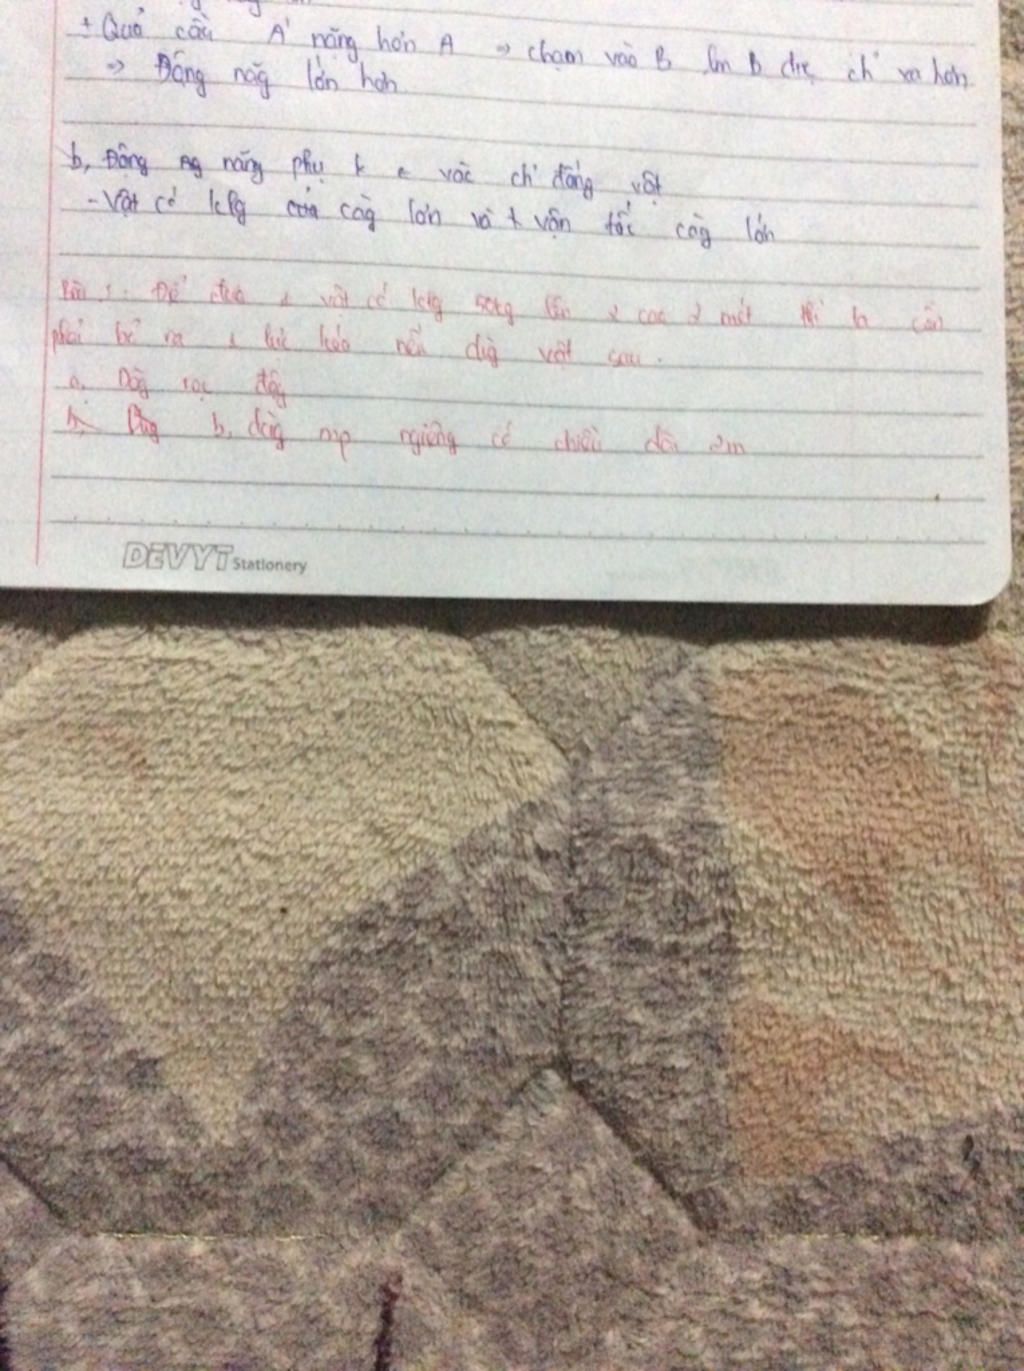 + Quả cầu A' nặng hơn A => chạm vào B làm B ch' xa hơn
=> Động năg lớn hơn
b, Động năng phụ t vào ch' động vật
- Vật có klg càg lớn và t vận tốc càg lớn
Bài 1: Để đưa 1 vật có klg 50kg lên cao 2 mét thì ta cần
phải bỏ ra 1 lực kéo nếu dùg vật sau.
a. Dòg rọc độg
b, dùg mp ngiêng có chiều dài 2m
DEVYT Stationery